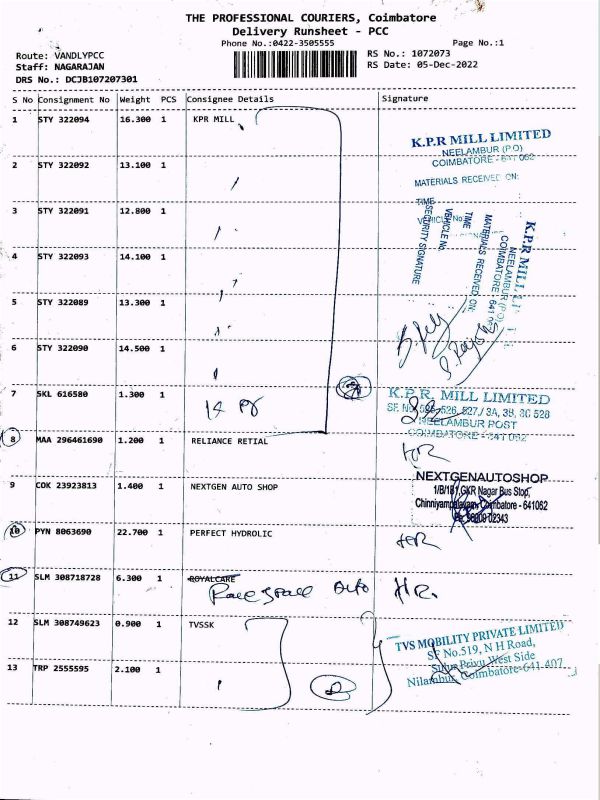 THE PROFESSIONAL COURIERS, Coimbatore
Delivery Runsheet - PCC
Phone No.:0422-3505555 Page No.:1
Route: VANDLYPCC RS No.: 1072073
Staff: NAGARAJAN RS Date: 05-Dec-2022
DRS No.: DCJB107207301
S No Consignment No Weight PCS Consignee Details Signature
1 STY 322094 16.300 1 KPR MILL
K.P.R MILL LIMITED
NEELAMBUR (P.O)
COIMBATORE - 641 062
2 STY 322092 13.100 1
MATERIALS RECEIVED ON:
TIME
VEHICLE No.
SECURITY SIGNATURE
3 STY 322091 12.800 1
K.P.R MILL
NEELAMBUR (P.O)
COIMBATORE - 641
MATERIALS RECEIVED ON:
TIME
VEHICLE No.
4 STY 322093 14.100 1
5 STY 322089 13.300 1
6 STY 322090 14.500 1
7 SKL 616580 1.300 1
K.P.R. MILL LIMITED
526, 527 / 3A, 3B, 3C 528
NEELAMBUR POST
COIMBATORE - 641 062
8 MAA 296461690 1.200 1 RELIANCE RETIAL
9 COK 23923813 1.400 1 NEXTGEN AUTO SHOP
NEXTGENAUTOSHOP
1/B/1B1,GKR Nagar Bus Stop,
Chinniyampalayam, Coimbatore - 641062
10 PYN 8063690 22.700 1 PERFECT HYDROLIC
11 SLM 308718728 6.300 1 ROYALCARE
12 SLM 308749623 0.900 1 TVSSK
TVS MOBILITY PRIVATE LIMITED
SF No.519, N H Road,
West Side
Coimbatore-641 407
13 TRP 2555595 2.100 1
2